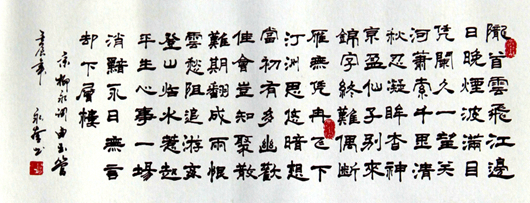 隴首雲飛江邊
日晚煙波滿目
凭闌久一望关
河蕭索千里清
秋忍凝眸杳神
京盈仙子別來
錦字終難偶斷
雁無凭冉飞下
汀洲思悠暗想
當初有多幽歡
佳會豈知聚散
難期翻成雨恨
雲愁阻追游每
登山臨水惹起
平生心事一場
消黯永日無言
却下層樓
宋柳永词曲玉管
年
书